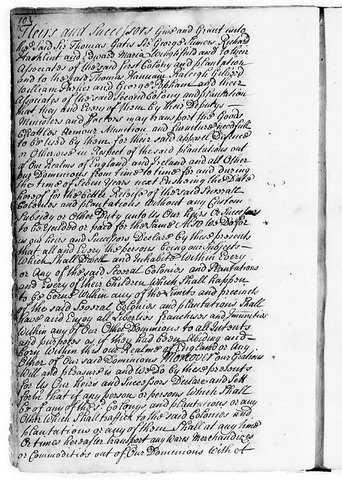 Heirs and Successors Give and Grant unto
the said Sir Thomas Gates Sir George Sumers Richard
Hackluit and Edward Maria Winghfield and to their
Associates of the said first Colony and plantation
and to the said Thomas Hannam Raleigh Gilbord
William Parker and George Popham and their
Associates of the said second Colony and plantation
that they and Every of them by their Deputys
Ministers and factors may transport the Goods
Chattles Armour Munition and furniture needfull
to be used by them for their said apparel Defence
or Otherwise in Respect of the said plantations out
of Our Realms of England and Ireland and all Other
Our Dominions from time to time for and during
the time of Seven Years next Ensuing the Date
hereof for the better Relief of the said Severall
Colonies and plantations without any Custom
Subsidy or Other Duty unto Us Our heirs or Successors
to be yeilded or paid for the same Also we Do for
us our heirs and Successors Declare by these presents
that all and Every the persons being our Subjects
which Shall Dwell and Inhabite within Every
or Any of the said Several Colonies and Plantations
and Every of their Children which Shall happen
to be born within any of the Limits and precincts
of the said Several Colonies and plantations Shall
have and Enjoy all Liberties franchises and Immunities
within any of Our Other Dominions to all Intents
and purposes as if they had been Abiding and
born within this our Realm of England or Any
Other of Our said Dominions Moreover our Gratious
Will and pleasure is and we Do by these presents
for Us Our heirs and Successors Declare and Sett
forth that if any person or persons which Shall
be of any of the Sd Colonys and plantations or any
Other which Shall trafick to the said Colonies and
plantations or any of them Shall at any time
Or times hereafter transport any Wares Merchandizes
or Commodities out of Our Dominions with A